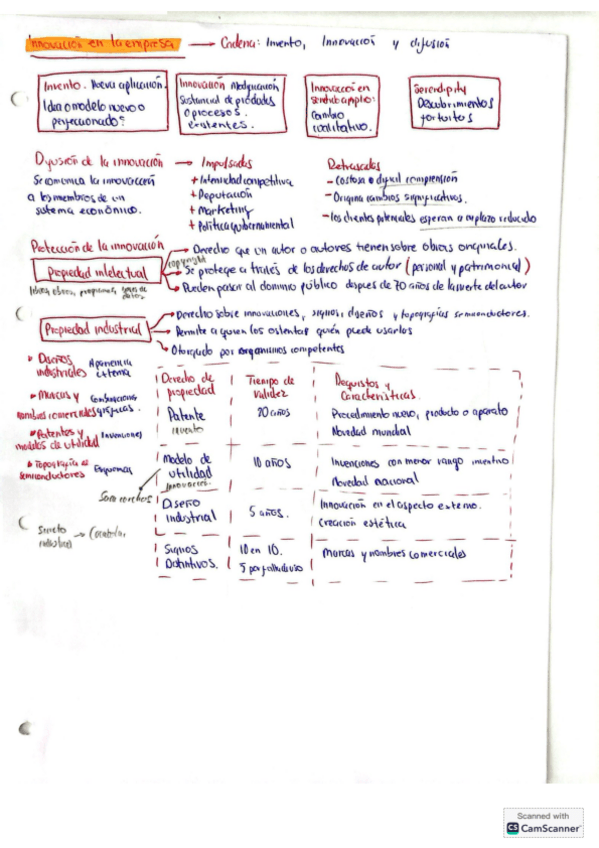 Innovación en la empresa → Cadena: Invento, Innovación y difusión
Invento. Nueva aplicación.
Idea o modelo nuevo o
perfeccionado?
Innovación Modificación
sustancial de prodades
o procesos.
existentes.
Innovación en
sentido amplio:
cambio
cualitativo.
Serendipity
Descubrimientos
fortuitos
Difusión de la innovación → Impulsados
Se comunica la innovación
a los miembros de un
sistema económico.
+ Intensidad competitiva
+ Reputación
+ Marketing
+ Política gubernamental
Retrasados
- Costosa o difícil comprensión
- Origina cambios significativos.
- los clientes potenciales esperan a un plazo reducido
Protección de la innovación
copyright
Propiedad intelectual
libros, obras, programas, bases de datos
Derecho que un autor o autores tienen sobre obras originales.
Se protege a través de los derechos de autor (personal y patrimonial)
Pueden pasar al dominio público despues de 70 años de la muerte del autor
Propiedad industrial
Derecho sobre innovaciones, signos, diseños y topografías semiconductores.
Permite a quien los ostenta quién puede usarlos
Otorgado por organismos competentes
Diseños industriales Apariencia externa
Marcas y nombres comerciales Combinaciones gráficas.
Patentes y modelos de utilidad Invenciones
Topografía de semiconductores Esquemas
Secreto industrial →
Derecho de propiedad | Tiempo de validez | Requisitos y Características.
Patente invento | 20 años | Procedimiento nuevo, producto o aparato
Novedad mundial
Modelo de utilidad innovación | 10 años | Invenciones con menor rango inventivo
Novedad nacional
Diseño industrial | 5 años. | Innovación en el aspecto externo.
Creación estética
Signos Distintivos. | 10 en 10. 5 por | Marcas y nombres comerciales
Scanned with
CS CamScanner